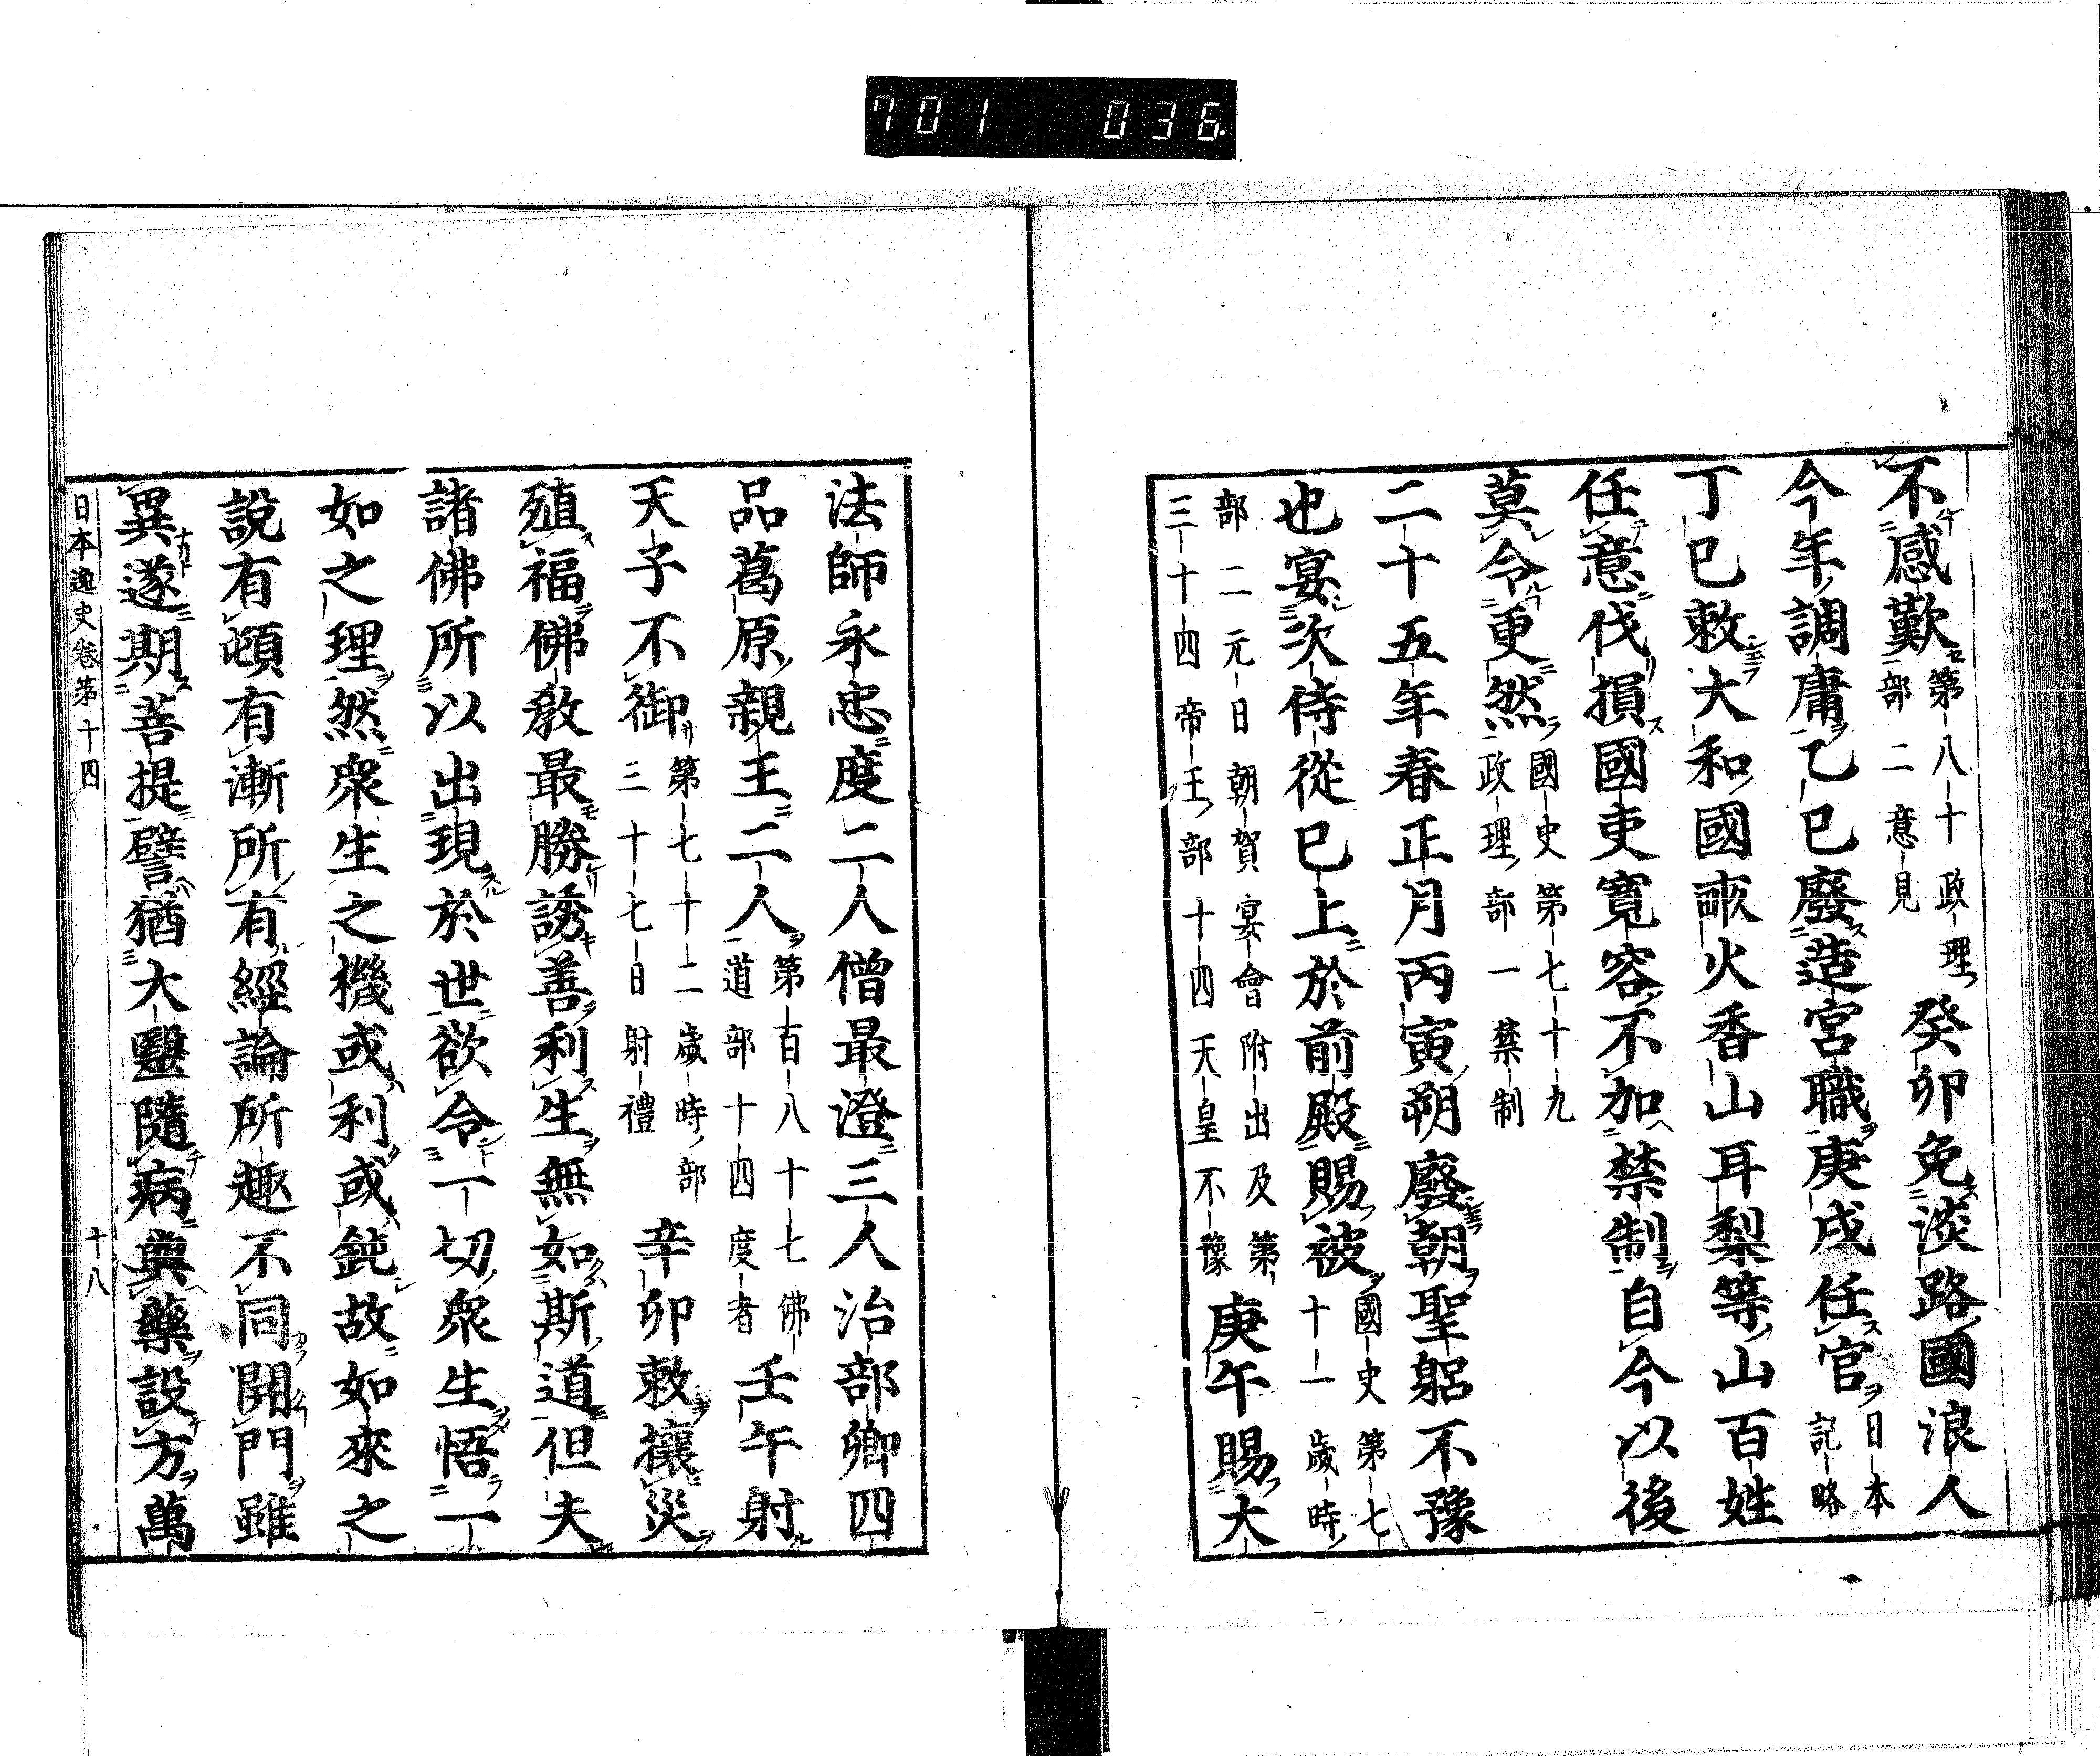 701 036
不感歎第八十政理部二意見癸卯免淡路國浪人
今年調庸乙巳廢造宮職庚戌任官日本記略
丁巳敕大和國畝火香山耳梨等山百姓
任意伐損國吏寬容不加禁制自今以後
莫令更然國史第七十九政理部一禁制
二十五年春正月丙寅朔廢朝聖躬不豫
也宴次侍從已上於前殿賜被國史第七十一歲時
部二元日朝賀宴會附出及第三十四帝王部十四天皇不豫庚午賜大
法師永忠度二人僧最澄三人治部卿四
品葛原親王二人第百八十七佛道部十四度者壬午射
天子不御第七十二歲時部三十七日射禮辛卯敕攘災
殖福佛教最勝誘善利生無如斯道但夫
諸佛所以出現於世欲令一切衆生悟一
如之理然衆生之機或利或鈍故如來之
說有頓有漸所有經論所趣不同開門雖
異遂期菩提譬猶大醫隨病與藥設方萬
日本逸史卷第十四 十八